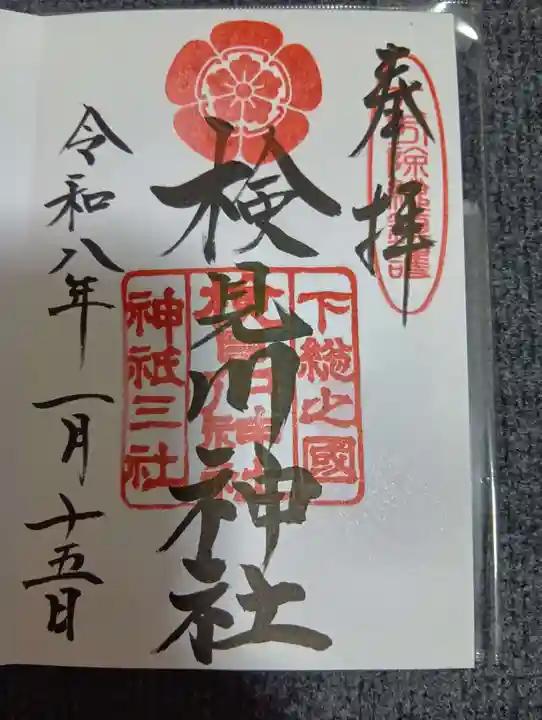 奉拝
検見川神社
下総之國
神祇三社
令和八年一月十五日